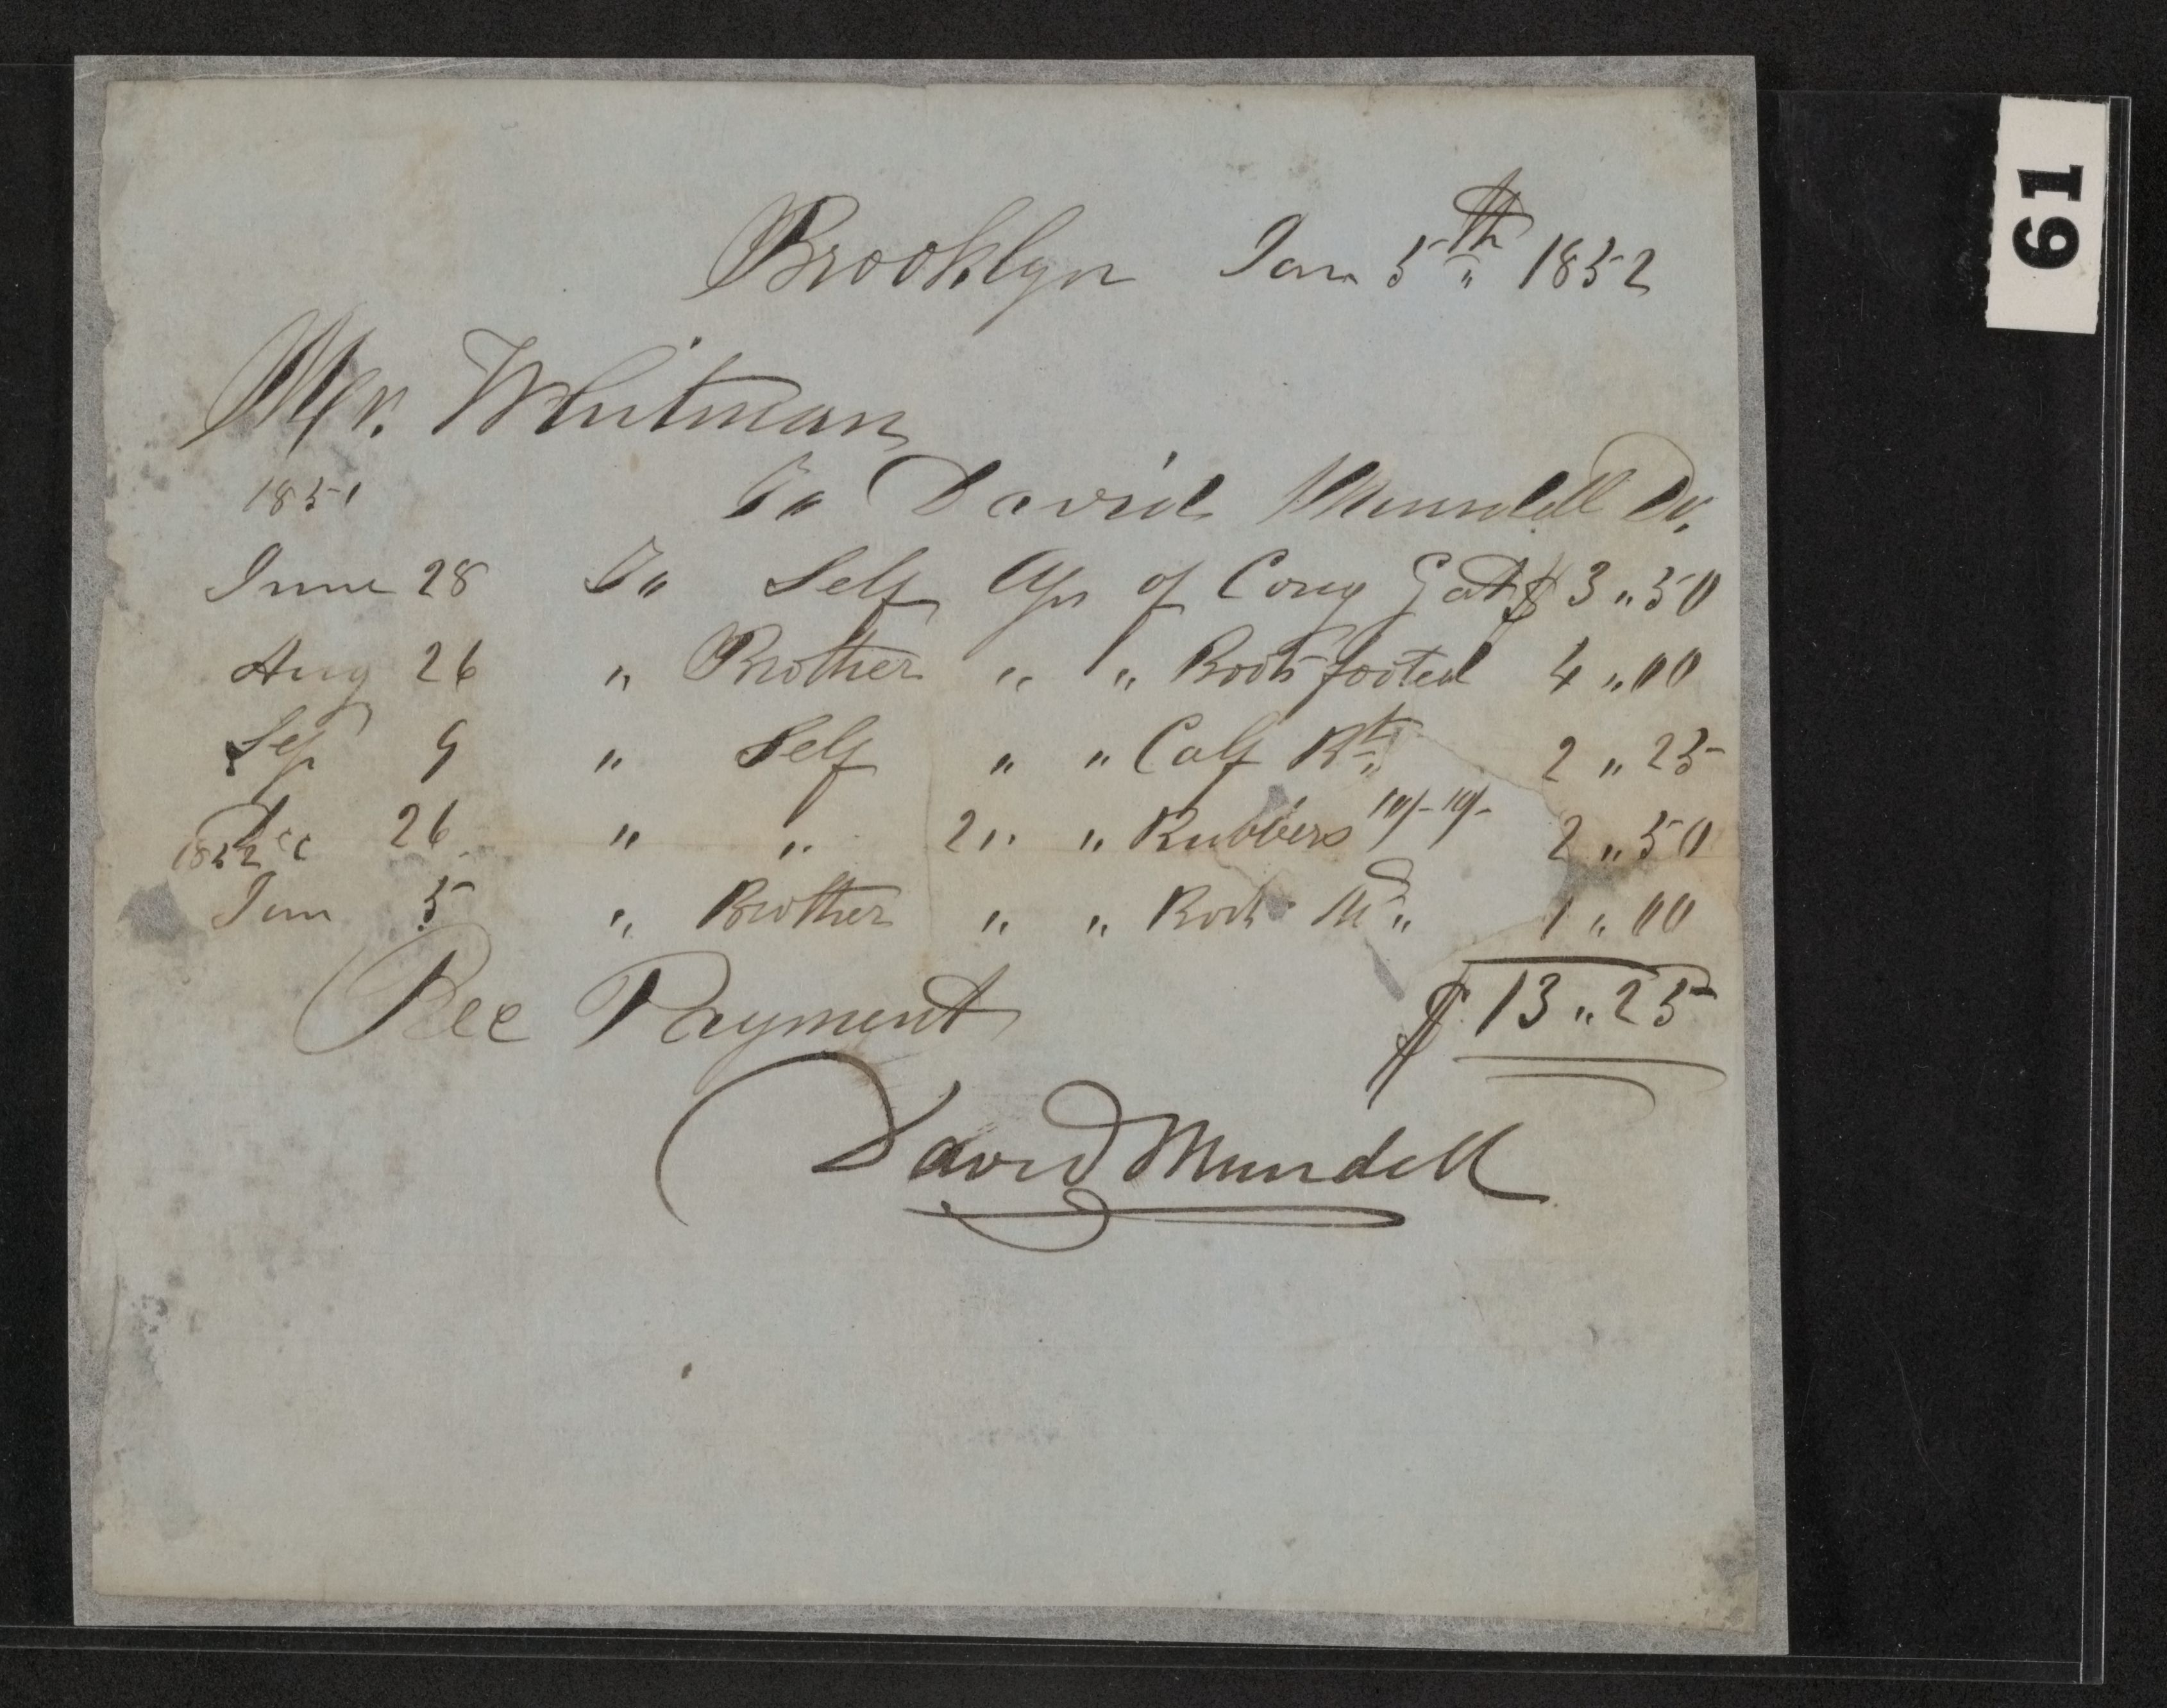 Brooklyn Jan 5th 1852
Mr. Whitman
1851 To David Mundell Dr.
June 28 To Self Pr of Cong Gats $ 3 "50
Aug 26 " Brother " " Boots footed 4 "00
Sep 9 " Self " " Calf Bts 2 " 25
Dec 26 " " 2 " " Rubbers 10/- 10/- 2 "50
1852
Jan 5 " Brother " " Boots Md " 1 " 00
Rec Payment $ 13 " 25
David Mundell
61